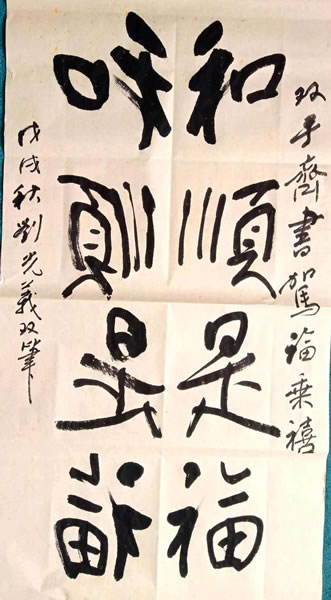 双手齊書駕福乘禧
和順是福
和順是福
戊戌秋劉光義双筆